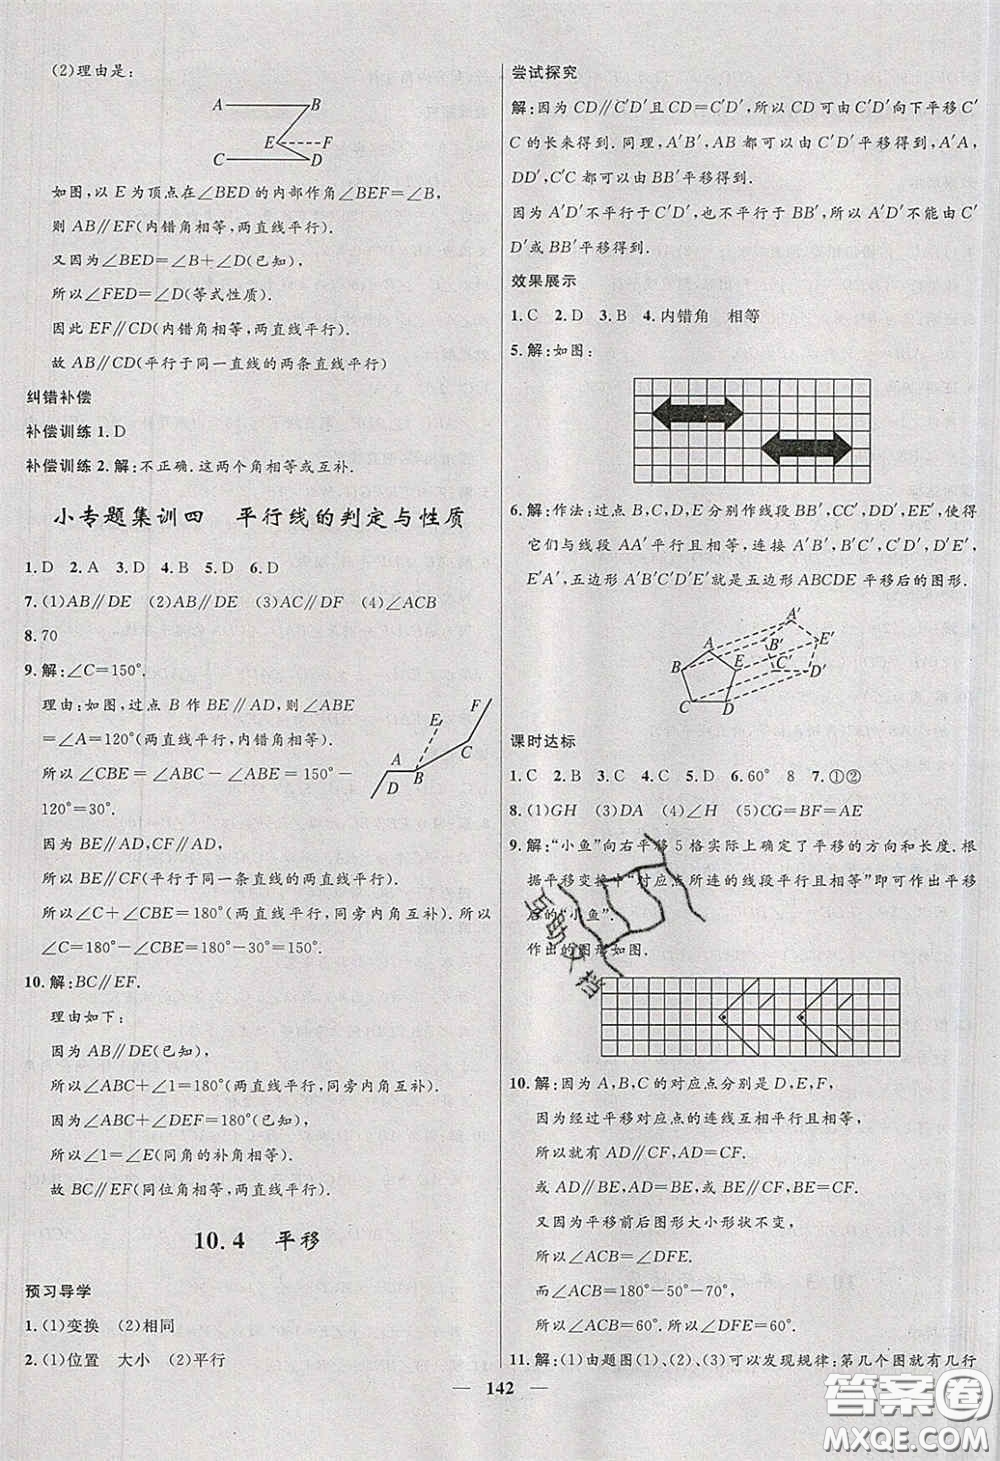 (2)理由是:
A B
E F
C D
如图,以 E 为顶点在∠BED 的内部作角∠BEF=∠B,
则 AB∥EF(内错角相等,两直线平行).
又因为∠BED=∠B+∠D(已知),
所以∠FED=∠D(等式性质).
因此 EF∥CD(内错角相等,两直线平行).
故 AB∥CD(平行于同一直线的两条直线平行)
纠错补偿
补偿训练 1. D
补偿训练 2. 解:不正确.这两个角相等或互补.
小专题集训四 平行线的判定与性质
1. D 2. A 3. D 4. B 5. D 6. D
7. (1)AB∥DE (2)AB∥DE (3)AC∥DF (4)∠ACB
8. 70
9. 解:∠C=150°.
理由:如图,过点 B 作 BE∥AD,则∠ABE
=∠A=120°(两直线平行,内错角相等).
所以∠CBE=∠ABC-∠ABE=150°-
120°=30°.
E
C
A
D B
因为 BE∥AD,CF∥AD,
所以 BE∥CF(平行于同一条直线的两直线平行).
所以∠C+∠CBE=180°(两直线平行,同旁内角互补).所以
∠C=180°-∠CBE=180°-30°=150°.
10. 解:BC∥EF.
理由如下:
因为 AB∥DE(已知),
所以∠ABC+∠1=180°(两直线平行,同旁内角互补).
因为∠ABC+∠DEF=180°(已知),
所以∠1=∠E(同角的补角相等).
故 BC∥EF(同位角相等,两直线平行).
10.4 平移
预习导学
1. (1)变换 (2)相同
2. (1)位置 大小 (2)平行
尝试探究
解:因为 CD∥C′D′且 CD=C′D′,所以 CD 可由 C′D′向下平移 C′
C 的长来得到.同理,A′B′,AB 都可以由 C′D′平移得到,A′A,
DD′,C′C 都可以由 BB′平移得到.
因为 A′D′不平行于 C′D′,也不平行于 BB′,所以 A′D′不能由 C′
D′或 BB′平移得到.
效果展示
1. C 2. D 3. B 4. 内错角 相等
5. 解:如图:
6. 解:作法:过点 B,C,D,E 分别作线段 BB′,CC′,DD′,EE′,使得
它们与线段 AA′平行且相等,连接 A′B′,B′C′,C′D′,D′E′,
E′A′,五边形 A′B′C′D′E′就是五边形 ABCDE 平移后的图形.
A′
A B′ E′
B E C′ D′
C D
课时达标
1. C 2. B 3. C 4. C 5. D 6. 60° 8 7. ①②
8. (1)GH (3)DA (4)∠H (5)CG=BF=AE
9. 解:“小鱼”向右平移 5 格实际上确定了平移的方向和长度.根
据平移变换中“对应点所连的线段平行且相等”即可作出平移
后的“小鱼”.
作出的图形如图.
10. 解:因为 A,B,C 的对应点分别是 D,E,F,
因为经过平移对应点的连线互相平行且相等,
所以就有 AD∥CF,AD=CF.
或 AD∥BE,AD=BE.或 BE∥CF,BE=CF.
又因为平移前后图形大小形状不变,
所以∠ACB=∠DFE.
而∠ACB=180°-50°-70°,
所以∠ACB=60°.所以∠DFE=60°.
11. 解:(1)由题图(1)、(2)、(3)可以发现规律:第几个图就有几行
142
互助文档
答案圈
MXQE.COM